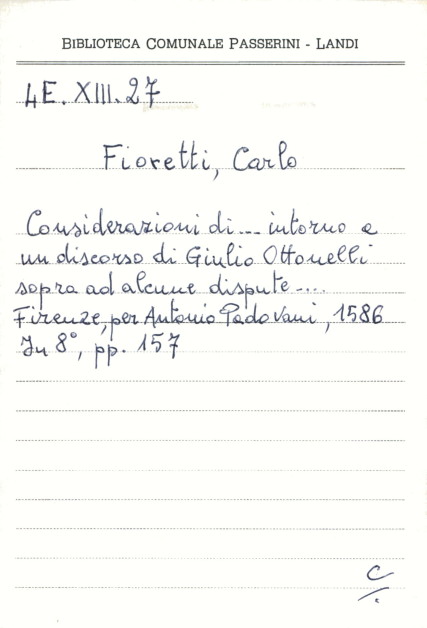 BIBLIOTECA COMUNALE PASSERINI - LANDI
4E. XIII. 27
Fioretti, Carlo
Considerazioni di... intorno a
un discorso di Giulio Ottonelli
sopra ad alcune dispute....
Firenze, per Antonio Padovani, 1586
In 8°, pp. 157
C